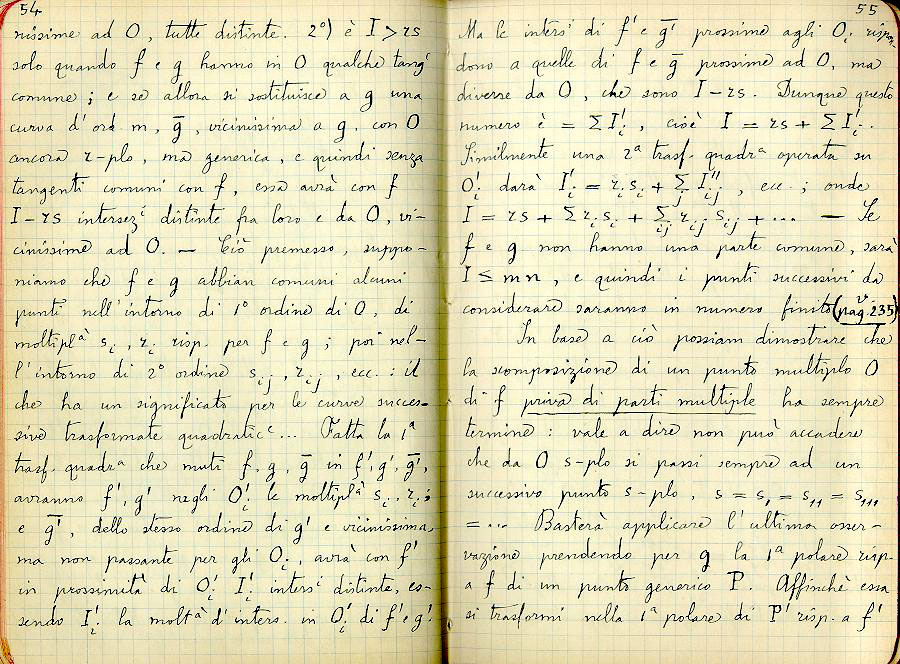 54
nissime ad O, tutte distinte. 2°) è I > rs
solo quando f e g hanno in O qualche tangᵗᵉ
comune ; e se allora si sostituisce a g una
curva d'ord. m, g̅, vicinissima a g, con O
ancora r-plo, ma generica, e quindi senza
tangenti comuni con f, essa avrà con f
I-rs intersezⁱ distinte fra loro e da O, vi-
cinissime ad O. — Ciò premesso, suppo-
niamo che f e g abbian comuni alcuni
punti nell'intorno di 1° ordine di O, di
moltiplᵃ sᵢ, rᵢ risp. per f e g ; poi nel-
l'intorno di 2° ordine sᵢⱼ, rᵢⱼ, ecc. : il
che ha un significato per le curve succes-
sive trasformate quadraticᵉ... Fatta la 1ᵃ
trasf. quadrᵃ che muti f, g, g̅ in f', g', g̅',
avranno f', g' negli O'ᵢ le moltiplᵃ sᵢ, rᵢ ;
e g̅', dello stesso ordine di g' e vicinissima,
ma non passante per gli Oᵢ, avrà con f'
in prossimità di O'ᵢ I'ᵢ intersⁱ distinte, es-
sendo I'ᵢ la moltᵃ d'inters. in O'ᵢ di f' e g'.
55
Ma le intersⁱ di f' e g̅' prossime agli O'ᵢ rispon-
dono a quelle di f e g̅ prossime ad O, ma
diverse da O, che sono I-rs. Dunque questo
numero è = ΣI'ᵢ, cioè I = rs + ΣI'ᵢ.
Similmente una 2ᵃ trasf. quadrᵃ operata su
O'ᵢ darà I'ᵢ = rᵢsᵢ + Σⱼ I''ᵢⱼ, ecc. ; onde
I = rs + Σ rᵢsᵢ + Σᵢⱼ rᵢⱼ sᵢⱼ + ... — Se
f e g non hanno una parte comune, sarà
I ≤ mn, e quindi i punti successivi da
considerare saranno in numero finito (v. pag. 235)
In base a ciò possiam dimostrare che
la scomposizione di un punto multiplo O
di f priva di parti multiple ha sempre
termine : vale a dire non può accadere
che da O s-plo si passi sempre ad un
successivo punto s-plo, s = s₁ = s₁₁ = s₁₁₁
= ... Basterà applicare l'ultima osser-
vazione prendendo per g la 1ᵃ polare risp.
a f di un punto generico P. Affinchè essa
si trasformi nella 1ᵃ polare di P' risp. a f'